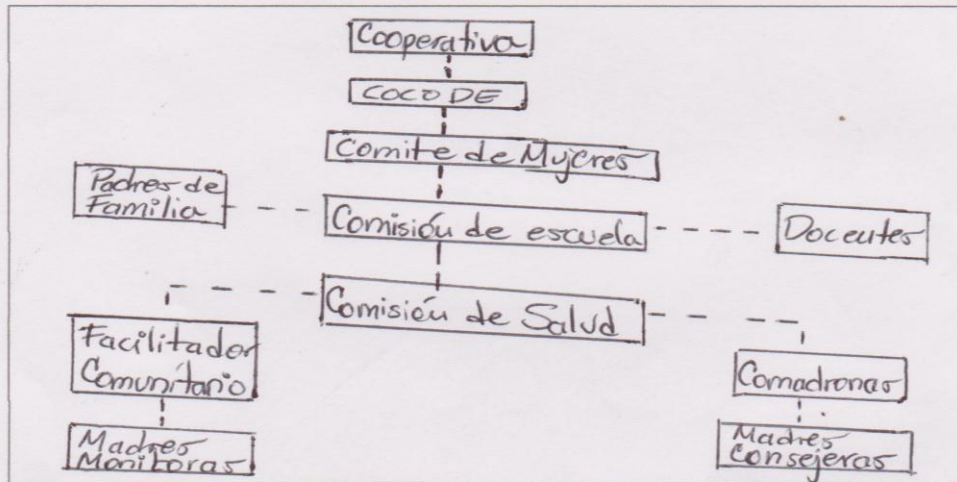 Cooperativa
COCODE
Comite de Mujeres
Padres de
Familia
Comisión de escuela
Docentes
Comisión de Salud
Facilitador
Comunitario
Comadronas
Madres
Monitoras
Madres
Consejeras